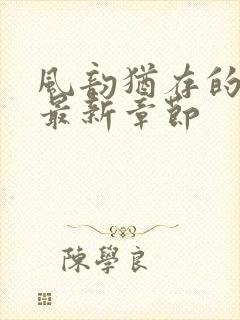 風韵猶存的
最新章節
陳學良